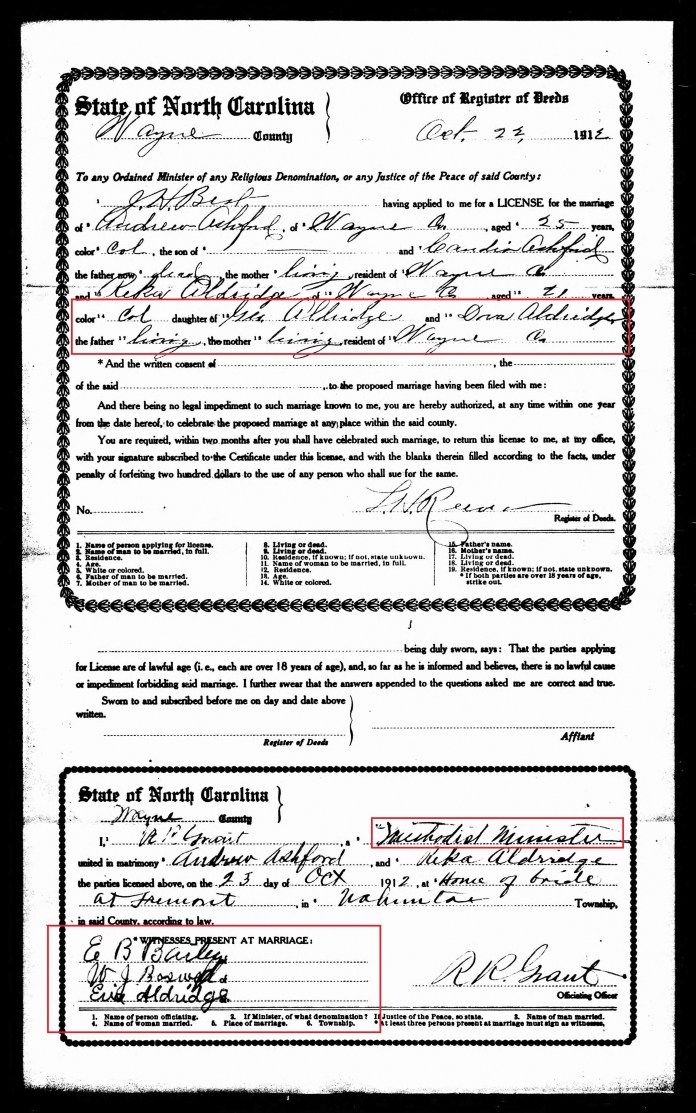 State of North Carolina
Office of Register of Deeds
Wayne County
Oct. 22, 1912
To any Ordained Minister of any Religious Denomination, or any Justice of the Peace of said County:
1 J. H. Best having applied to me for a LICENSE for the marriage
of 2 Andrew Ashford, of 3 Wayne Co, aged 4 25 years,
color 5 Col, the son of 6 and 7 Candis Ashford
the father now 8 dead, the mother 9 living, resident of 10 Wayne Co
and 11 Reka Aldridge of 12 Wayne Co aged 13 21 years,
color 14 Col daughter of 15 Geo. Aldridge and 16 Dora Aldridge,
the father 17 living, the mother 18 living, resident of 19 Wayne Co
* And the written consent of , the
of the said , to the proposed marriage having been filed with me:
And there being no legal impediment to such marriage known to me, you are hereby authorized, at any time within one year
from the date hereof, to celebrate the proposed marriage at any place within the said county.
You are required, within two months after you shall have celebrated such marriage, to return this license to me, at my office,
with your signature subscribed to the Certificate under this license, and with the blanks therein filled according to the facts, under
penalty of forfeiting two hundred dollars to the use of any person who shall sue for the same.
No.
Register of Deeds.
1. Name of person applying for license.
2. Name of man to be married, in full.
3. Residence.
4. Age.
5. White or colored.
6. Father of man to be married.
7. Mother of man to be married.
8. Living or dead.
9. Living or dead.
10. Residence, if known; if not, state unknown.
11. Name of woman to be married, in full.
12. Residence.
13. Age.
14. White or colored.
15. Father's name.
16. Mother's name.
17. Living or dead.
18. Living or dead.
19. Residence, if known; if not, state unknown.
* If both parties are over 18 years of age,
strike out.
being duly sworn, says: That the parties applying
for License are of lawful age (i. e., each are over 18 years of age), and, so far as he is informed and believes, there is no lawful cause
or impediment forbidding said marriage. I further swear that the answers appended to the questions asked me are correct and true.
Sworn to and subscribed before me on day and date above
written.
Register of Deeds
Affiant
State of North Carolina
Wayne County
I, 1 R R Grant, a 2 Methodist Minister
united in matrimony 3 Andrew Ashford, and 4 Reka Aldridge
the parties licensed above, on the 23 day of Oct 1912, at 5 Home of bride
at Fremont, in 6 Nahunta Township,
in said County, according to law.
* WITNESSES PRESENT AT MARRIAGE:
E B Bailey
W J Boswell
Erie Aldridge
R. R. Grant
Officiating Officer
1. Name of person officiating. 2. If Minister, of what denomination? If Justice of the Peace, so state. 3. Name of man married.
4. Name of woman married. 5. Place of marriage. 6. Township. * At least three persons present at marriage must sign as witnesses.